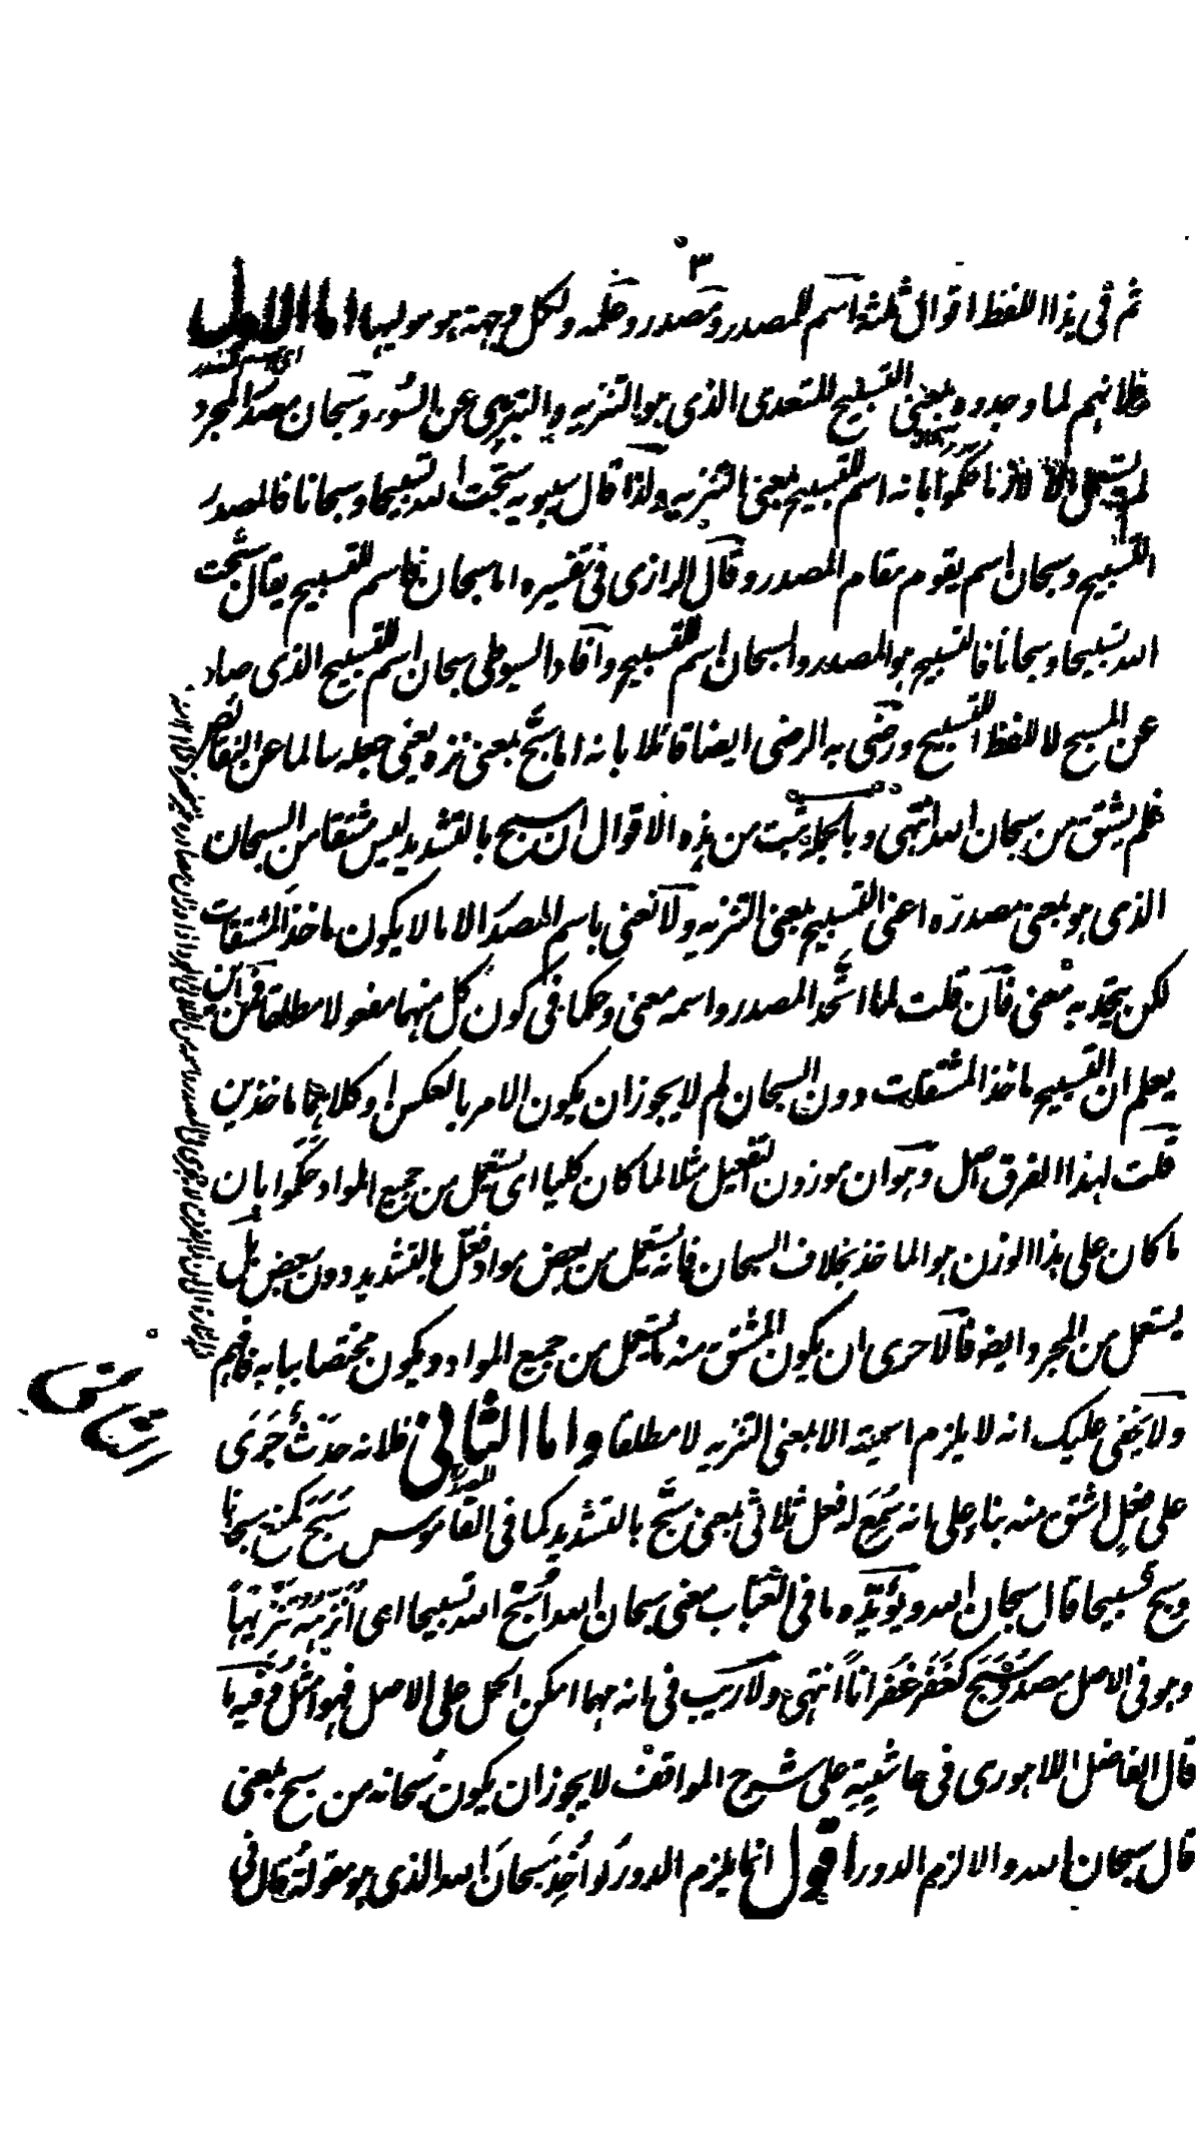 ٣
ثم في هذا اللفظ اقوال ثلثة اسم للمصدر ومصدر وعلمه ولكل وجهة هو موليها اما الاول
فلانهم لما وجدوه بمعنى التسبيح المتعدى الذى هو التنزيه والتبرى عن السوء وسبحان مصدر المجرد
لم يستعمل الا لازما حكموا بانه اسم للتسبيح بمعنى التنزيه ولذا قال سيبويه سبحت الله تسبيحا وسبحانا فالمصدر
التسبيح وسبحان اسم يقوم مقام المصدر وقال الرازى في تفسيره اما سبحان فاسم للتسبيح يقال سبحت
الله تسبيحا وسبحانا فالتسبيح هو المصدر والسبحان اسم للتسبيح وافاد السيوطى سبحان اسم للتسبيح الذى صادر
عن المسبح لا للفظ التسبيح ورضى به الرضى ايضا قائلا بانه اما سبح بمعنى نزه يعنى جعله سالما عن النقائص
فلم يشتق من سبحان الله انتهى وبالجملة ثبت من هذه الاقوال ان سبح بالتشديد ليس مشتقا من السبحان
الذى هو بمعنى مصدره اعنى التسبيح بمعنى التنزيه ولا نعنى باسم المصدر الا ما لا يكون ماخذ المشتقات
لكن يتحد به معنى فان قلت لما اتحد المصدر واسمه معنى وحكما في كون كل منهما مفعولا مطلقا فمن اين
يعلم ان التسبيح ماخذ المشتقات دون السبحان لم لا يجوز ان يكون الامر بالعكس او كلاهما ماخذين
قلت لهذا الفرق اصل وهو ان موزون تفعيل مثلا لما كان كليا اى يستعمل من جميع المواد حكموا بان
ما كان على هذا الوزن هو الماخذ بخلاف السبحان فانه يستعمل من بعض مواد فعّل بالتشديد دون بعض بل
يستعمل من المجرد ايضا فالاحرى ان يكون المشتق منه ما يستعمل من جميع المواد ويكون مختصا ببابه فافهم
ولا يخفى عليك انه لا يلزم اسميته الا بمعنى التنزيه لا مطلقا واما الثانى فلانه حدث جرى
على فعل اشتق منه بناء على انه سمع له فعل ثلاثى بمعنى سبح بالتشديد كما في القاموس سبح كمنع سبحانا
وسبح تسبيحا قال سبحان الله ويؤيده ما في العباب معنى سبحان الله اسبح الله تسبيحا اى انزهه تنزيها
وهو في الاصل مصدر سبح كغفر غفرانا انتهى ولا ريب في انه مهما امكن الحمل على الاصل فهو امثل وفيه ما
قال الفاضل اللاهورى في حاشيته على شرح المواقف لا يجوز ان يكون سبحانه من سبح بمعنى
قال سبحان الله والا لزم الدور اقول انما يلزم الدور لو اخذ سبحان الله الذى هو مقولة قال في